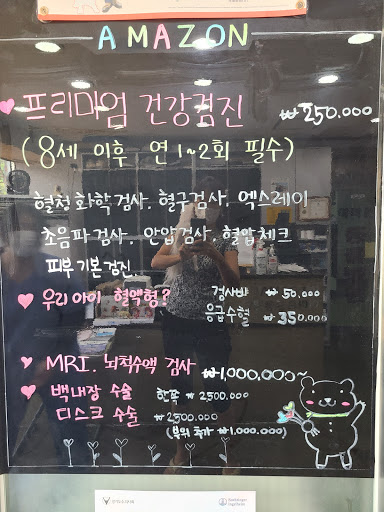 AMAZON
프리미엄 건강검진 ₩250.000
(8세 이후 연 1~2회 필수)
혈청 화학 검사. 혈구검사. 엑스레이
초음파 검사. 안압 검사. 혈압체크
피부 기본 검진.
우리 아이 혈액형? 검사비 ₩50.000
응급수혈 ₩350.000
MRI. 뇌척수액 검사 ₩1,000,000~
백내장 수술 한쪽 ₩2500.000
디스크 수술 ₩2500.000
(부위 추가 ₩1,000.000)